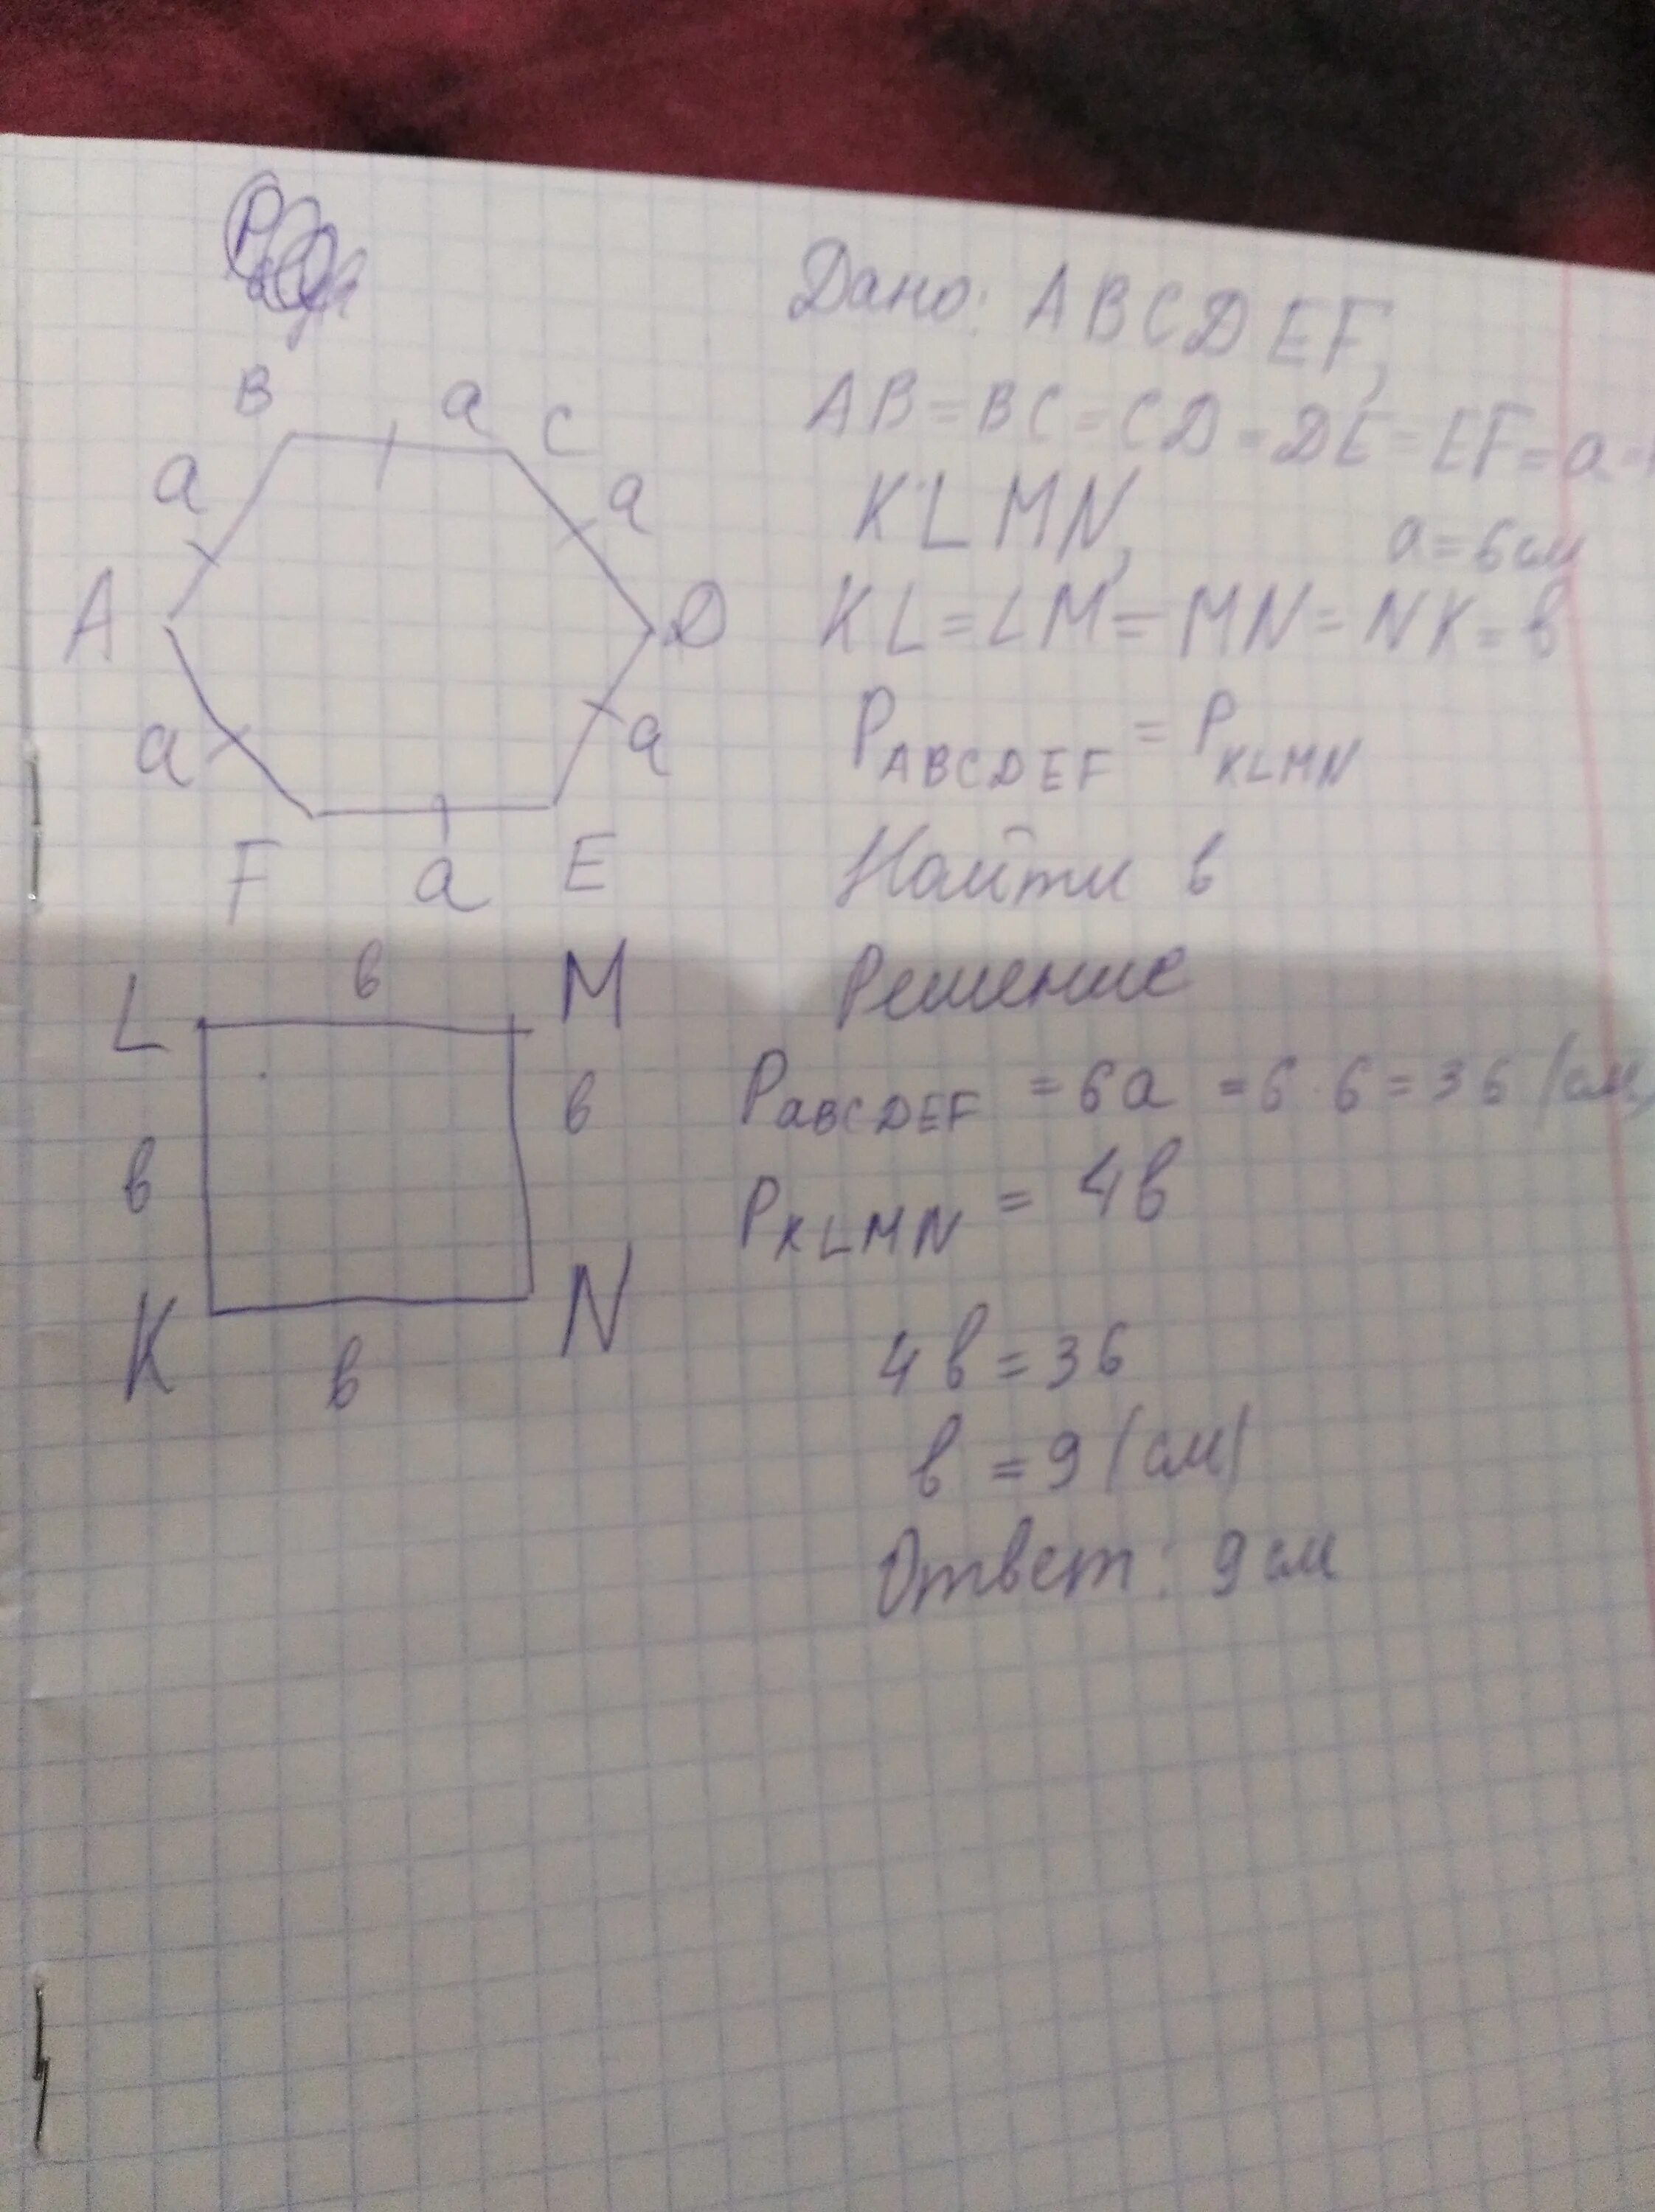 Дано: ABCDEF,
AB=BC=CD=DE=EF=a=
KLMN,
a=6см
KL=LM=MN=NK=в
P ABCDEF = P KLMN
Найти в
Решение
P ABCDEF = 6a = 6·6=36 (см)
P KLMN = 4в
4в=36
в=9 (см)
Ответ: 9 см
B a C
a a
A D
a a
F a E
L в M
в в
K в N